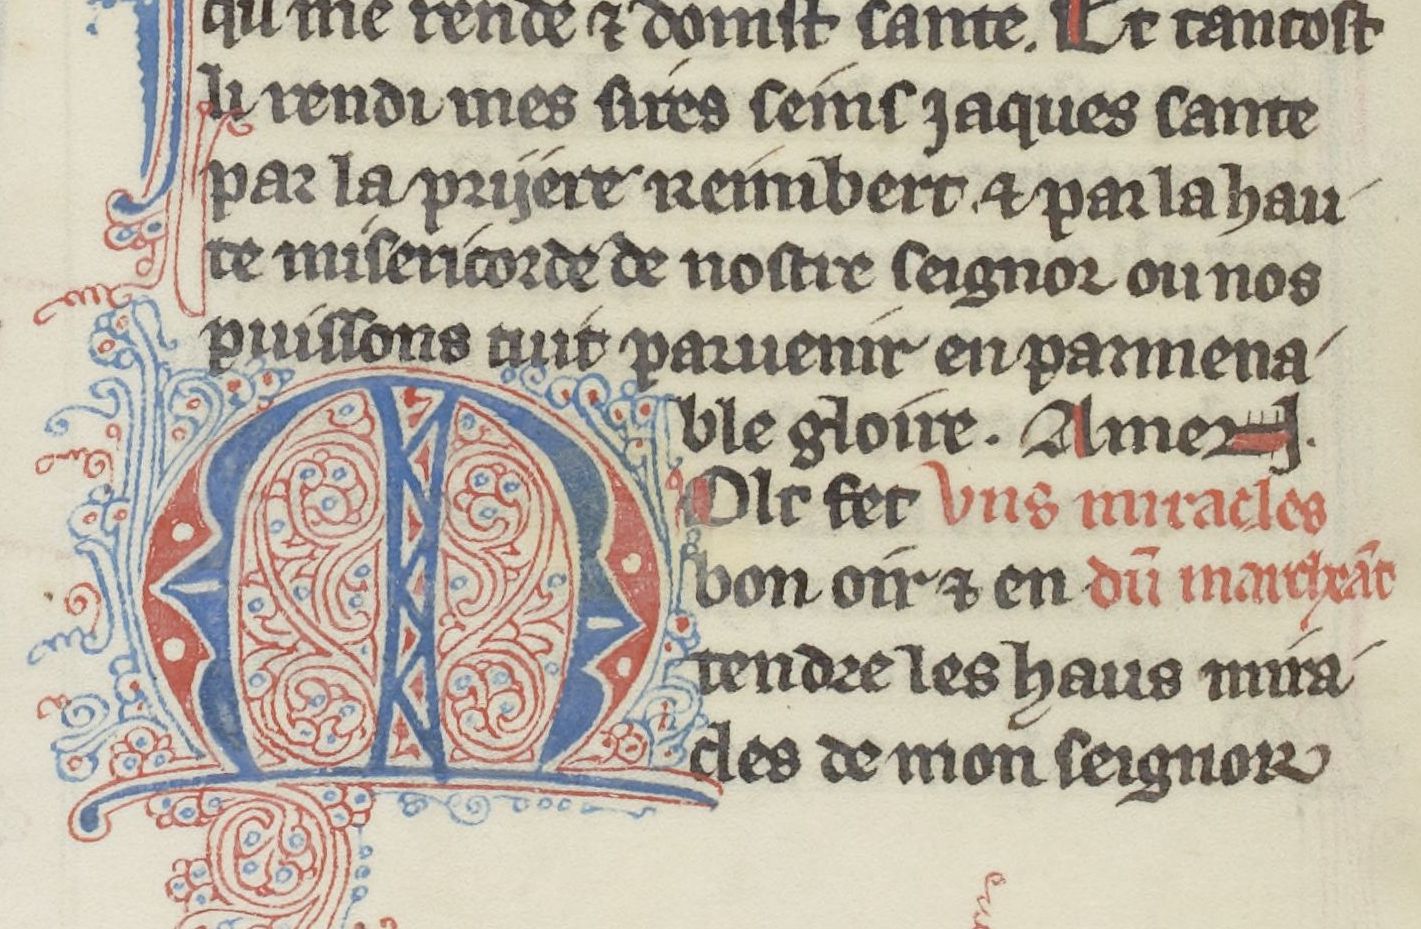 qu me rende ⁊ donist sante. Et tantost
li rendi mes sires seins jaques sante
par la prijere reimbert. ⁊ par la hau
te misericorde de nostre seignor ou nos
puissons tuit paruenir en parmena
ble gloire. Amen.
MOlt fet Vns miracles
bon oir ⁊ en dũ marcheãt
tendre les haus mira
cles de mon seignor